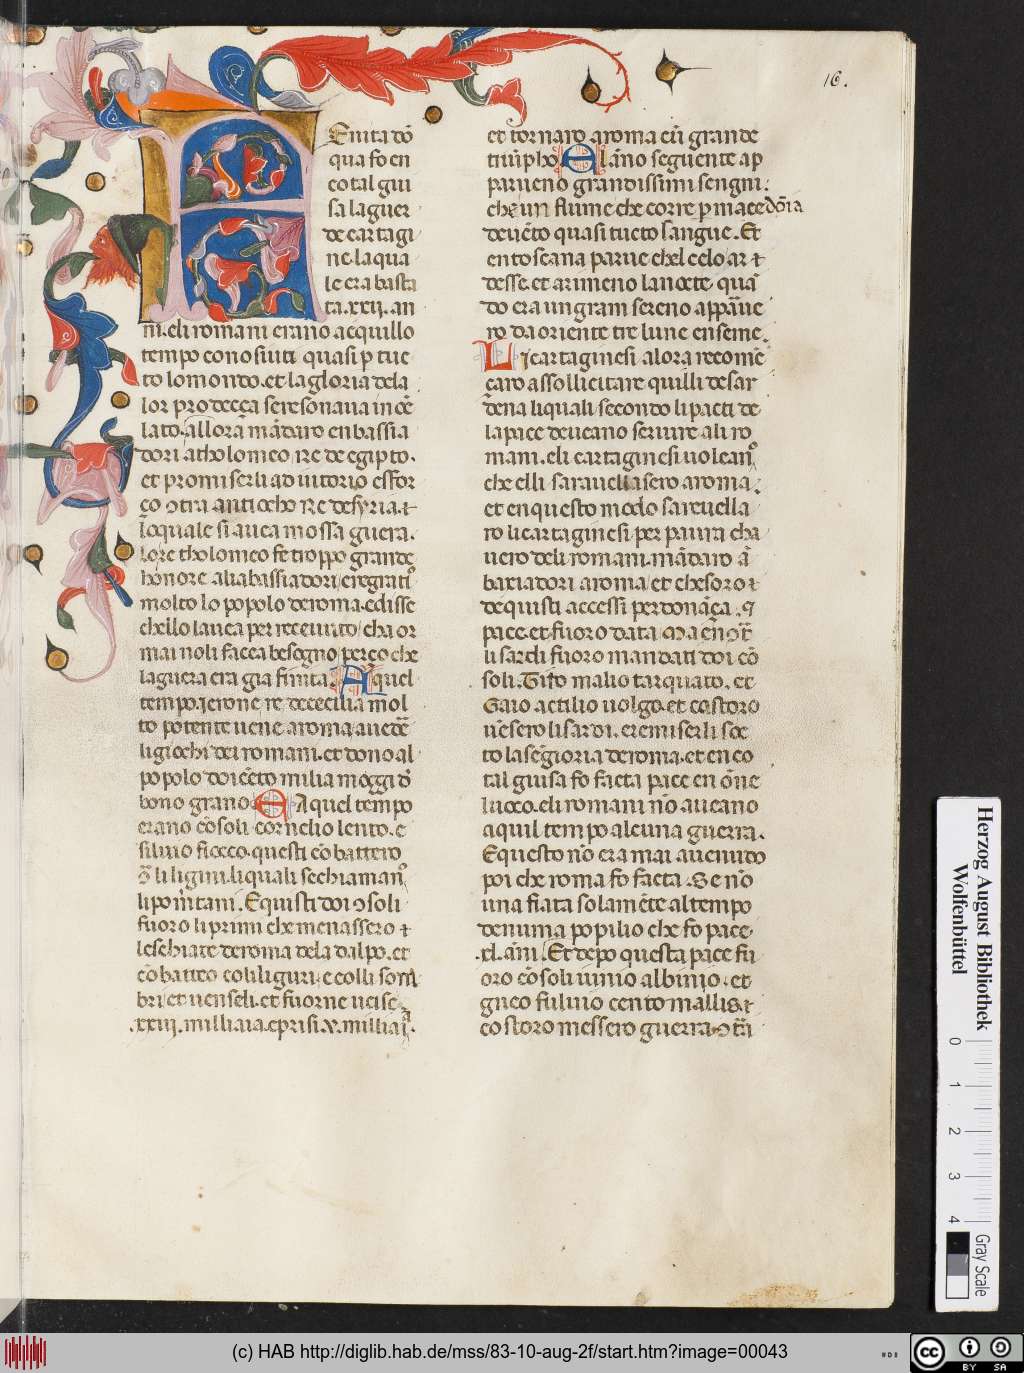 16.
Enita dō
qua fo en
cotal gui
sa la guer
de cartagi
ne. la qua
le era basta
ta. xxij. an
ni. eli romani erano acquillo
tempo conosiuti quasi p tuc
to lo mondo. et la gloria dela
lor prodecça se resonaua in oē
lato. allora mādaro enbassia
dori a tholomeo Re de egipto.
et promiserli adiutorio esfor
ço ɔtra antiocho Re de syria. ⁊
loquale si auea mossa guera.
lo re tholomeo fe troppo grande
honore ali abassiadori e regratiˀ
molto lo popolo de roma. e disse
chello lauea per receiuuto cha or
mai noli facea besogno perço che
la guera era gia finita. A quel
tempo. ierone re de cecilia mol
to potente uene a roma a uedē
li giochi dei romani. et dono al
popolo doicēto milia moggi d
bono grano. A quel tempo
erano cōsoli cornelio lento. e
siluio fiocco. questi cōbattero
li ligini. li quali se chiamanˀ
li ponitani. Equisti doi ɔsoli
fuoro li primi che menassero ⁊
le schiate de roma dela dal po. et
cōbatteo coli liguri. e colli som
bri. et uenseli. et fuorne ucise
.xxiij. milliaia. e prisi .v. milliaia.
et tornaro a roma cū grande
triūpho. El āno seguente ap
parueno grandissimi sengni.
che un fiume che corre p macedōia
deuēto quasi tucto sangue. Et
en toscana parue chel celo ar ⁊
desse. et arimeno la nocte quā
do era un gram sereno appāue
ro da oriente tre lune enseme.
Li cartaginesi alora recomē
çaro assollicitare quilli de sar
dena li quali secondo li pacti de
la pace deueano seruire ali ro
mani. eli cartaginesi uoleanˀ
che elli sarauellasero a roma.
et en questo modo sareuella
ro li cartaginesi per paura cha
uero deli romani. mādaro ā
baxiadori a roma et chesoro ⁊
de quisti accessi perdonāça. ⁊
pace. et fuoro data
li sardi fuoro mandati doi cō
soli. Tito malio tarquato. et
Gaio actilio uolgo. et costoro
uēsero li sardi. e remiserli soc
to la sēgioria de roma. et en co
tal guisa fo facta pace en oīne
luoco. eli romani nō aueano
aquil tempo alcuna guerra.
Equesto nō era mai auenuto
poi che roma fo facta. Se nō
una fiata solamēte al tempo
de numa popilio che fo pace
.xl. āni. Et depo questa pace fu
oro cōsoli iunio albinio. et
gneo fuluio cento mallis. ⁊
costoro messero guerra ɔtra
Herzog August Bibliothek
Wolfenbüttel
0 1 2 3 4
Gray Scale
(c) HAB http://diglib.hab.de/mss/83-10-aug-2f/start.htm?image=00043
cc BY SA